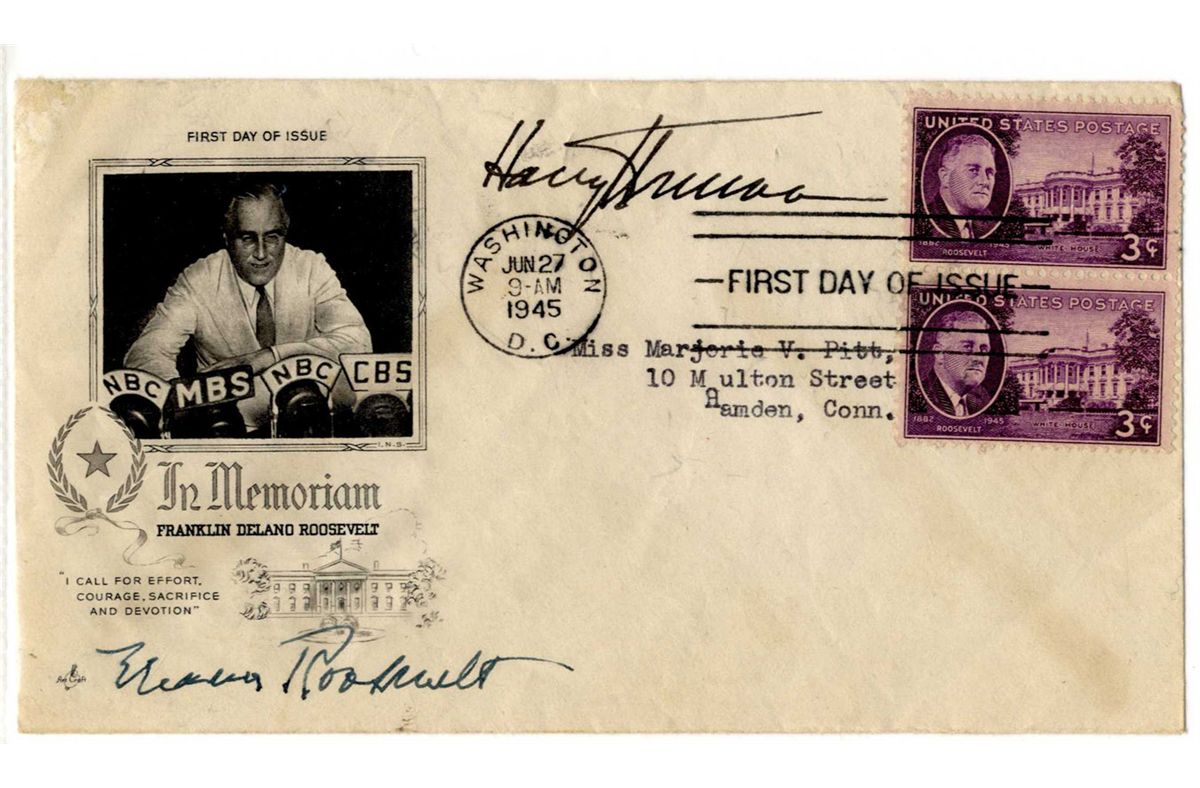 FIRST DAY OF ISSUE
Harry Truman
UNITED STATES POSTAGE
1882 1945
ROOSEVELT
WHITE HOUSE
3¢
WASHINGTON
JUN 27
9-AM
1945
D. C.
—FIRST DAY OF ISSUE—
UNITED STATES POSTAGE
1882 1945
ROOSEVELT
WHITE HOUSE
3¢
Miss Marjorie V. Pitt,
10 M ulton Street
Hamden, Conn.
NBC MBS NBC CBS
I.N.S.
In Memoriam
FRANKLIN DELANO ROOSEVELT
"I CALL FOR EFFORT,
COURAGE, SACRIFICE
AND DEVOTION"
Art Craft
Eleanor Roosevelt